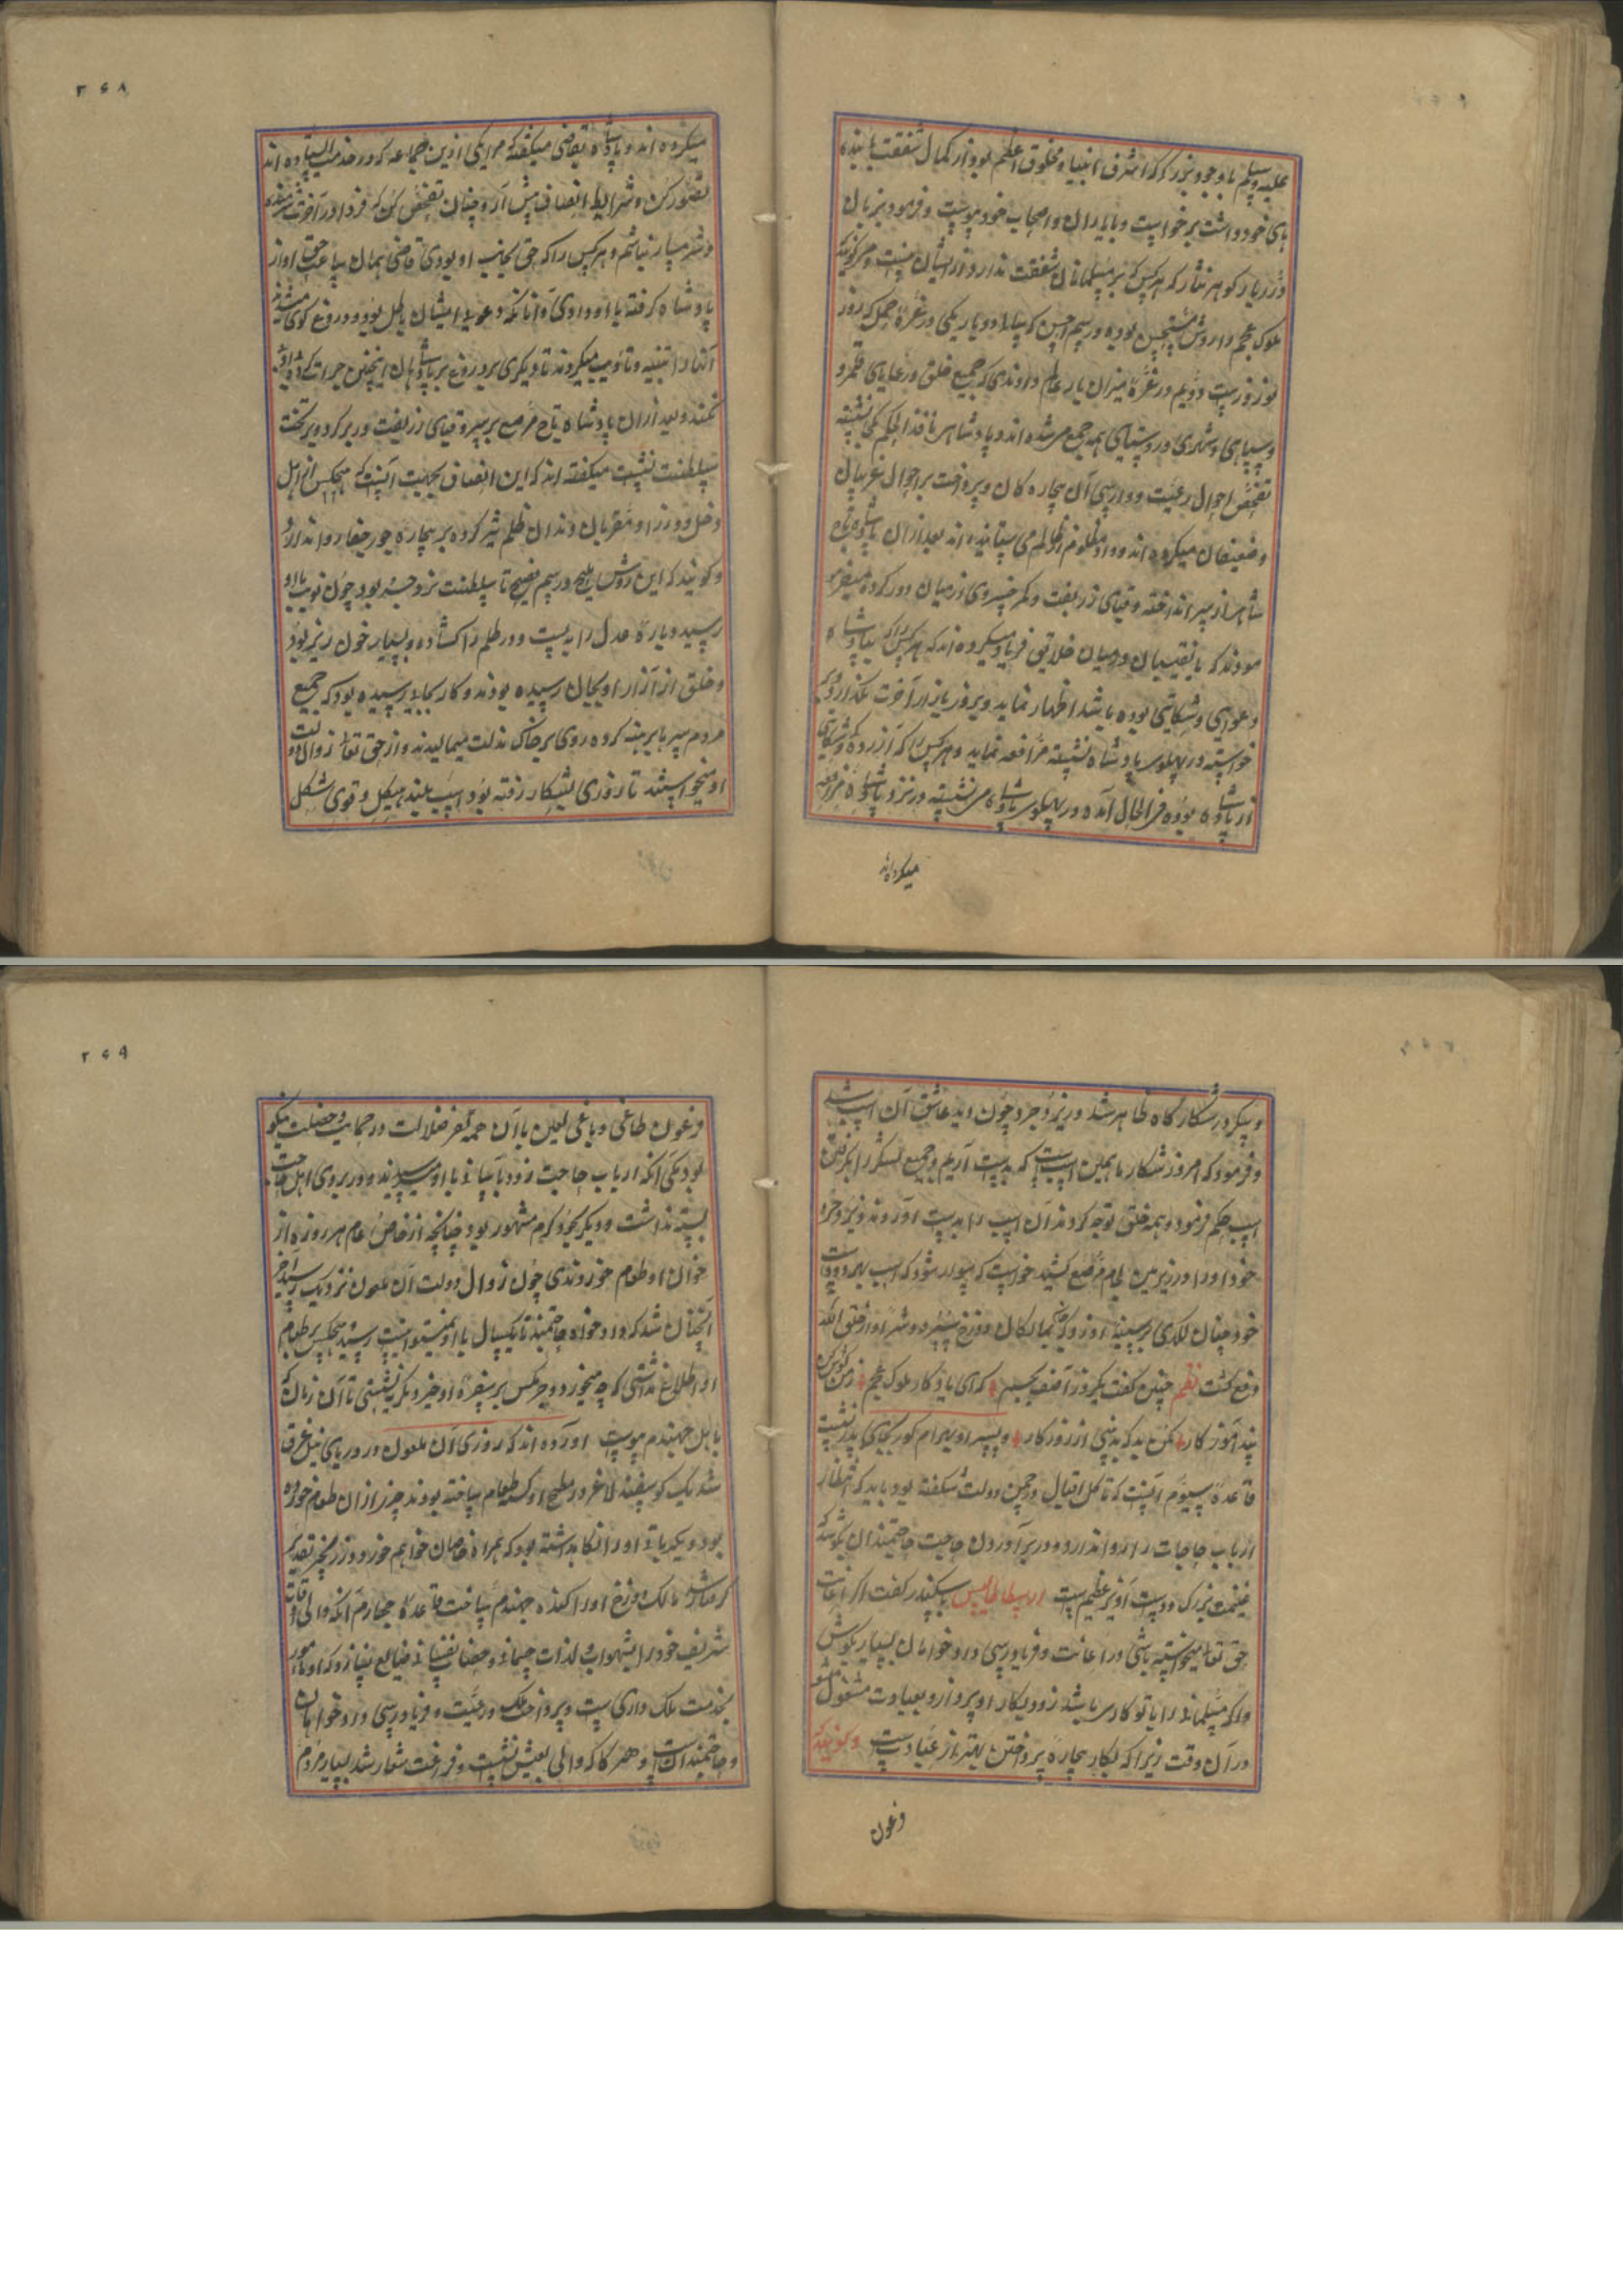 علیه وسلم با وجود بزرگی که اشرف انبیا و مخلوق اعظم بود از کمال شفقت بنده
پای خود داشت برخواست و با یاران و اصحاب خود پیوست و فرمود بزبان
درربار گوهر نثار که هر کس که بر مسلمانان شفقت ندارد از ایشان نیست و می گویند که
ملوک عجم را روش مستحسن بوده و رسم احسن که سالی دو بار یکی در غره حمل که روز
نوروزست و دویم در غره میزان بار عام دادندی که جمیع خلق و رعایای قلمرو
و سپاهی و شهری و روستایی همه جمع می شده اند و پادشاهی نافذ الحکم نشسته
تفحص احوال رعیت و وارسی آن بیچاره کان و پرداخت بر احوال غریبان
و ضعیفان میکرده اند و داد مظلوم از ظالم می ستانیده اند بعد از آن پادشاه تاج
شاهی از سر انداخته و قبای زربفت و کمر خسروی از میان دور کرده میفر
مودند که با نقیبان در میان خلایق فریاد میکرده اند که هر کس را که با پادشاه
دعوایی و شکایتی بوده باشد اظهار نماید و بروز بازار آخرت نگذارد و
خواسته در پهلوی پادشاه نشسته مرافعه نماید و هر کس را که آزرده کی و شکایتی
از پادشاه بوده فی الحال آمده در پهلوی پادشاه می نشسته و در نزد پادشاه مرافعه
میکرده اند
۲۶۸
میکرده اند و پادشاه بقاضی میگفته که مرا یکی ازین جماعه که در خدمت ایستاده اند
تصور کن و شرایط انصاف پیش آر و چنان تفحص کن که فردا در آخرت شرمنده
و شرمسار نباشم و هر کس را که حق بجانب او بودی قاضی همان ساعت حق او از
پادشاه گرفته با او دادی و آنانکه دعوی ایشان باطل بود و دروغ گوی میشدند
آنها را تنبیه و تأدیب میکردند تا دیگری بدروغ بر پادشاهان اینچنین جرات
نکنند و بعد از آن پادشاه تاج مرصع بر سر و قبای زربفت در بر کرده بر تخت
سلطنت نشست میگفته اند که این انصاف بجهت آنست که هیچکس از اهل
دخل و وزرا و مقربان دندان ظلم تیز کرده بر بیچاره جور جفا روا ندارد
و گویند که این روش ملیح و رسم نصیح تا سلطنت یزدجرد بود چون نوبت باو
رسید و باره عدل را به بست و در ظلم را کشاده و بسیار خون ریز بود
و خلق از آزار او بجان رسیده بودند و کار بجایی رسیده بود که جمیع
مردم سر پا برهنه کرده روی بر خاک مذلت میمالیدند و از حق تعالی زوال دولت
او میخواستند تا روزی بشکار رفته بود اسپ بلند هیکل و قوی شکل
و پیکر در شکارگاه ظاهر شد و یزدجرد چون دید عاشق آن اسپ شد
و فرمود که امروز شکار ما همین اسپ است که بدست آریم و جمیع لشکر را بگرفتن
اسپ حکم فرمود و همه خلق توجه کردند آن اسپ را بدست آوردند و یزدجرد
خود او را در زیر زین لجام مرصع کشید خواست که سوار شود که اسپ بهر دو دست
خود چنان لکدی بر سینه او زد که بمالکان دوزخ سپرد و شر او از خلق الله
دفع گشت نظم چنین گفت یکروز آصف بجم که ای یادگار ملوک عجم ز من گوش کن
پند آموز کار مکن بد که بد بینی از روزگار و پسر او بهرام گور بجای پدر نشست
قاعده سیوم آنست که تا گل اقبال در چمن دولت شکفته بود باید که انتظار
ارباب حاجات را روا ندارد و در برآوردن حاجت حاجتمندان بکوشد که
غنیمت بزرگ و دوست آویز عظیم ست ارسطاطالیس باسکندر گفت اگر اعانت
حق تعالی میخواسته باشی در اعانت و فریادرسی دادخواهان بسیار بکوش
و اگر مسلمانی را با تو کاری باشد زود بکار او پرداز و بعبادت مشغول مشو
در آن وقت زیرا که بکار بیچاره پرداختن بهتر از عبادت ست و گویند که
فرعون
۲۶۹
فرعون طاغی و باغی لعین با آن همه کفر ضلالت در حمایت دو خصلت نیکو
بود یکی آنکه ارباب حاجت زود بآسانی باو میرسیدند و در بروی اهل حاجت
بسته نداشت و دیگر بجود و کرم مشهور بود چنانچه از خاص و عام هر روزه از
خوان او طعام خوردندی چون زوال دولت آن ملعون نزدیک رسید آخر
آنچنان شد که دادخواه حاجتمند تا یکسال باو نمیتوانست رسید و هیچکس بر طعام
او اطلاع نداشتی که چه میخورد و جز مکس بر سفره او چیز دیگر ننشستی تا آن زمان که
باهل جهنم پیوست آورده اند که روزی آن ملعون در دریای نیل غرق
شد یک گوسفند لاغر در مطبخ او که طعام ساخته بودند جزء از آن طعام خورده
بود و یکدیگر باقی او را نگاه داشته بود که همراه خاصان خواهم خورد و زرنیخ تقدیر
گرفتار شد مالک دوزخ او را کنده جهنم ساخت قاعده چهارم آنکه والی اوقات
شریف خود را بشهوات و لذات جسمانی و حظات نفسانی ضایع نسازد که او مامور
بخدمت ملک داری ست و پرداخت ملک و رعیت و فریادرسی دادخواهان
و حاجتمندانست و هر گاه که والی بعیش نشست و فراغت شعار شد بسیار مردم